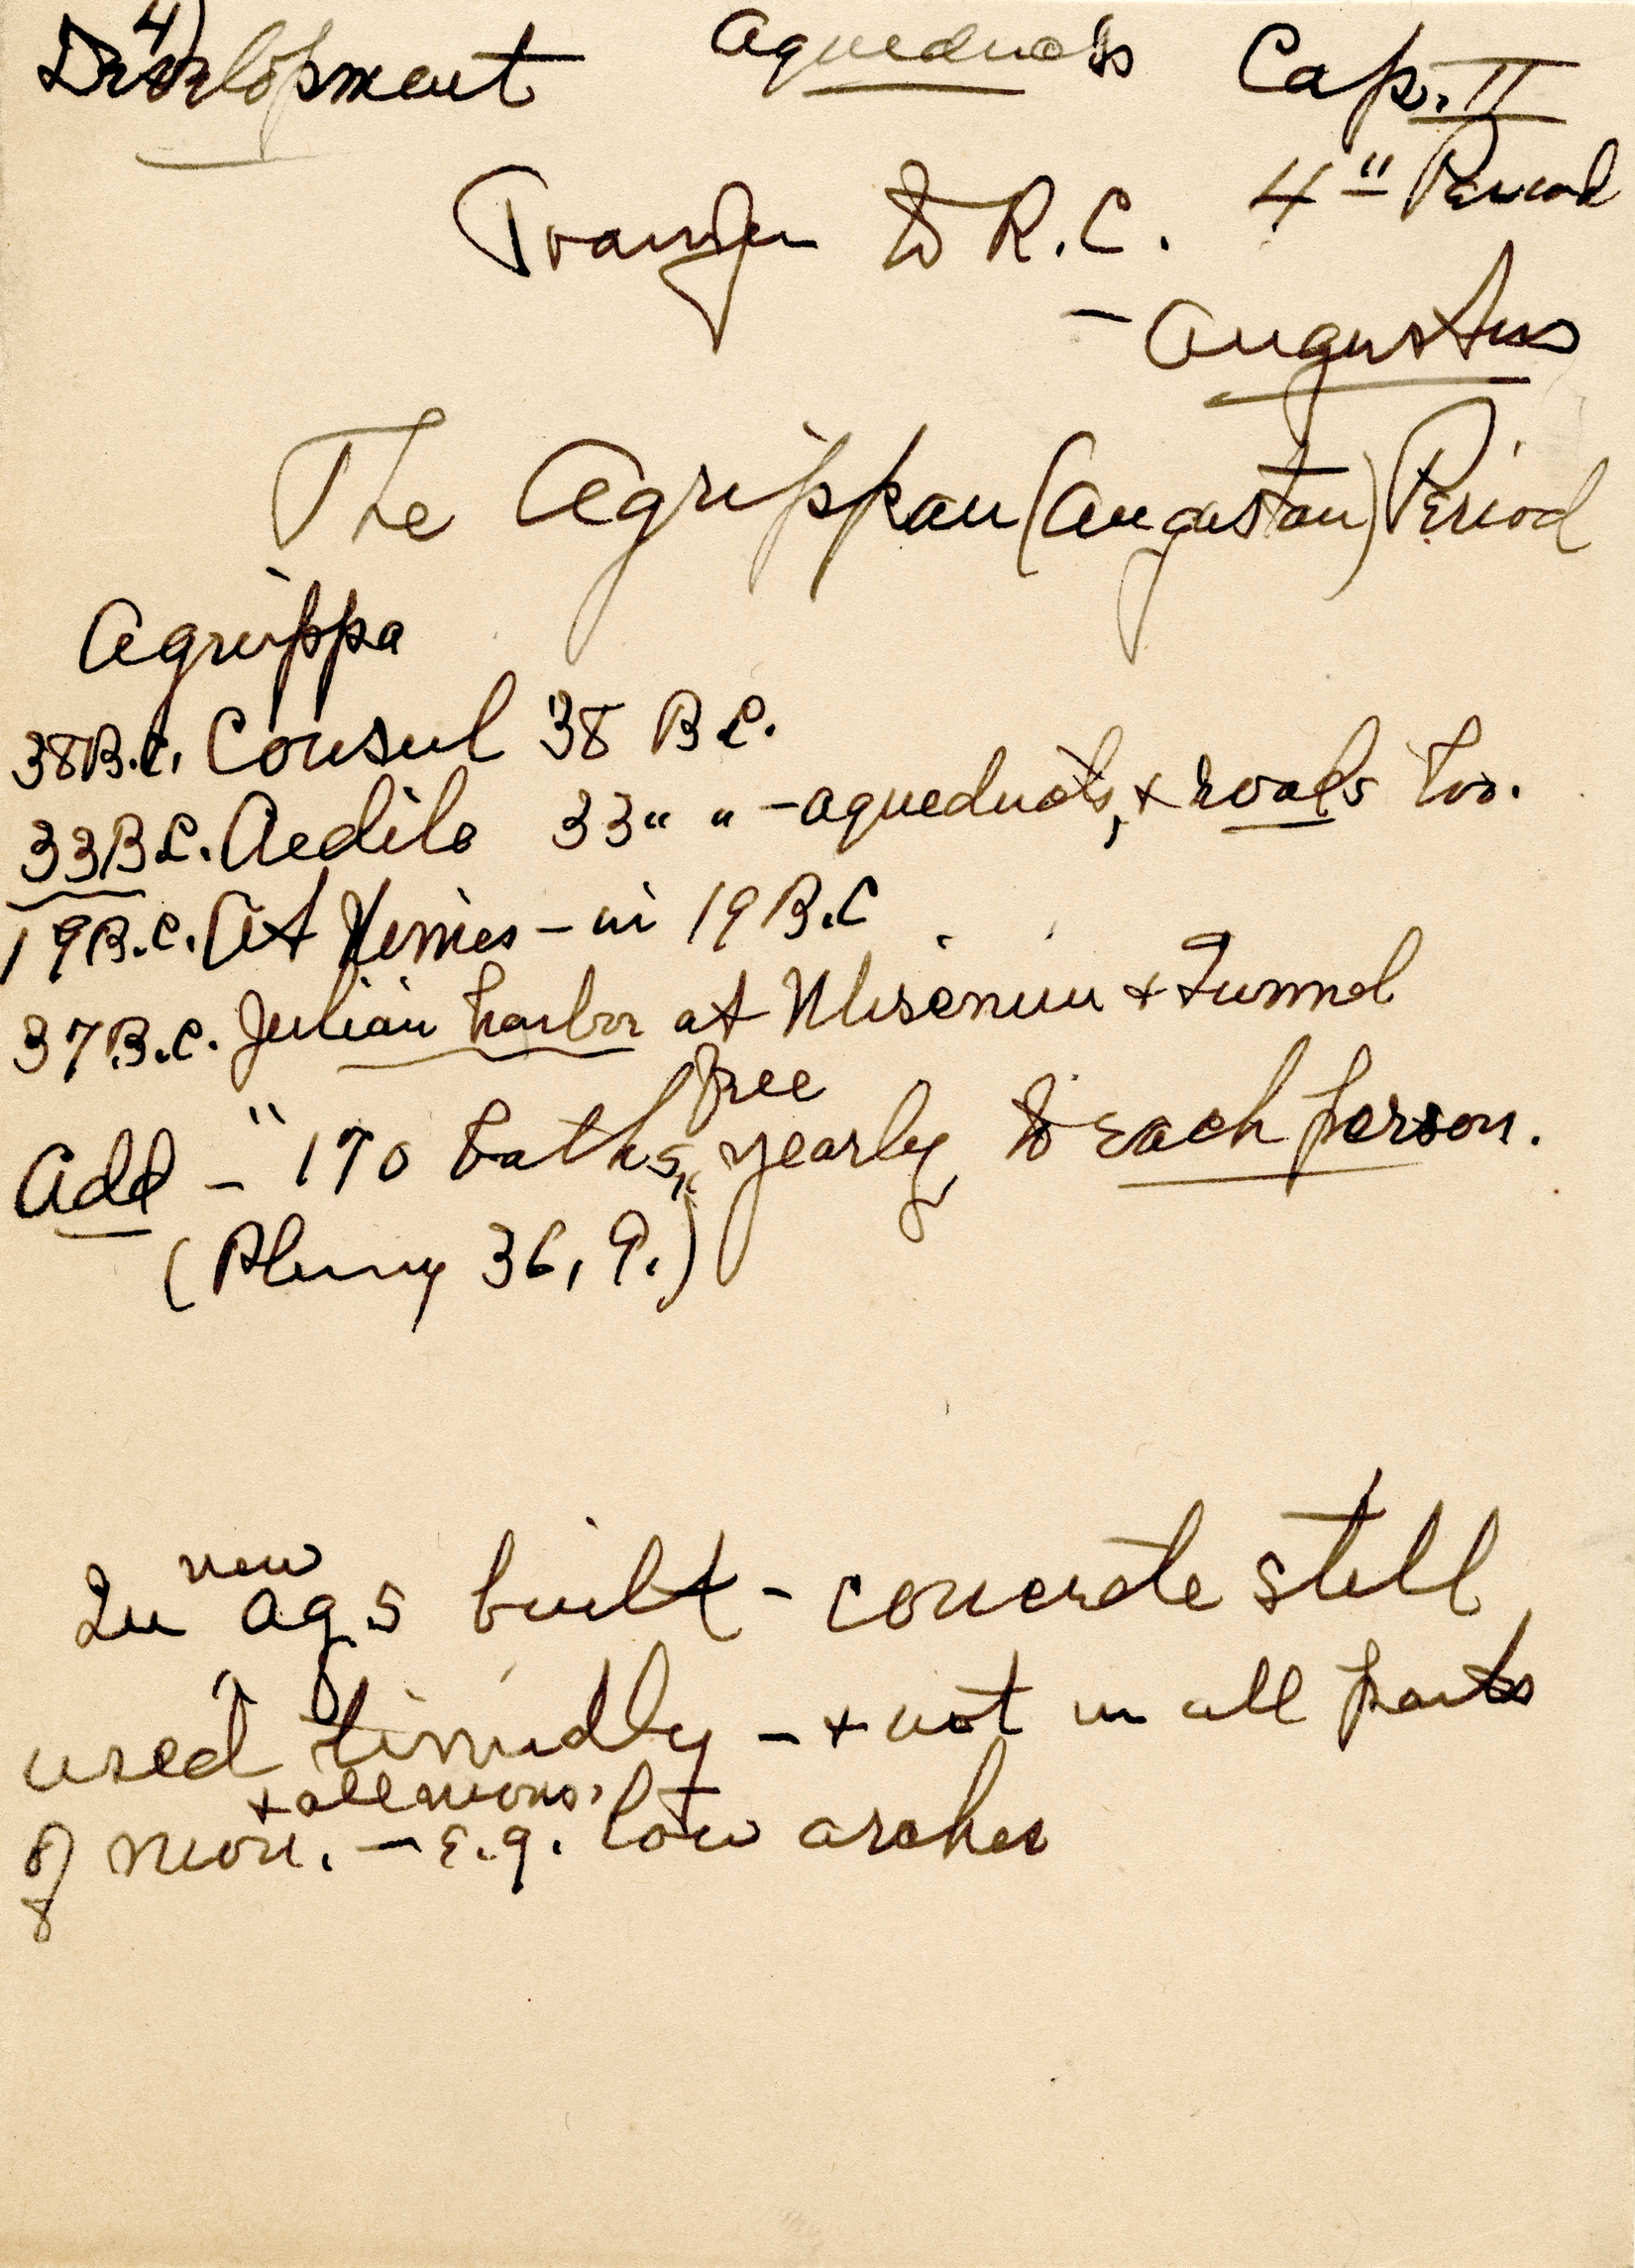 4)
Development Aqueducts Cap. II
Transfer to R.C. 4" Period
- Augustus
The Agrippan (Augustan) Period
Agrippa
38 B.C. Consul 38 B.C.
33 B.C. Aedile 33 " " - aqueducts, + roads too.
19 B.C. At Nimes - in 19 B.C
37 B.C. Julian harbor at Misenum + Tunnel
free
Add - " 170 baths, yearly, to each person.
(Pliny 36, 9.)
new
In aqs built - concrete still
used timidly - + not in all parts
+ all mons.
of mon. - e.g. low arches